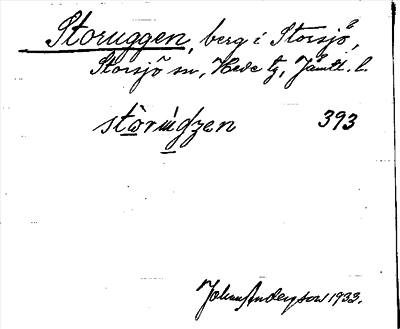 Storuggen, berg i Storsjö,
Storsjö sn, Hede tg, Jämtl. l.
393
Johan Anderson 1933.